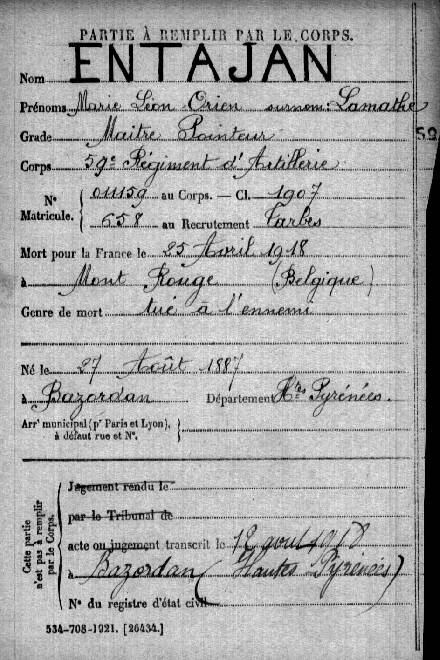 PARTIE À REMPLIR PAR LE CORPS.
Nom ENTAJAN
Prénoms Marie Léon Orien surnom: Lamathe
Grade Maitre Pointeur
59
Corps 59e Régiment d'Artillerie
N° Matricule. 011159 au Corps. — Cl. 1907
658 au Recrutement Tarbes
Mort pour la France le 25 Avril 1918
à Mont Rouge (Belgique)
Genre de mort tué à l'ennemi
Né le 27 Août 1887
à Bazordan Département Htes Pyrénées.
Arrt municipal (pr Paris et Lyon),
à défaut rue et N°.
Cette partie n'est pas à remplir par le Corps.
Jugement rendu le
par le Tribunal de
acte ou jugement transcrit le 12 août 1918
à Bazordan (Hautes Pyrénées)
N° du registre d'état civil
534-708-1921. [26434.]